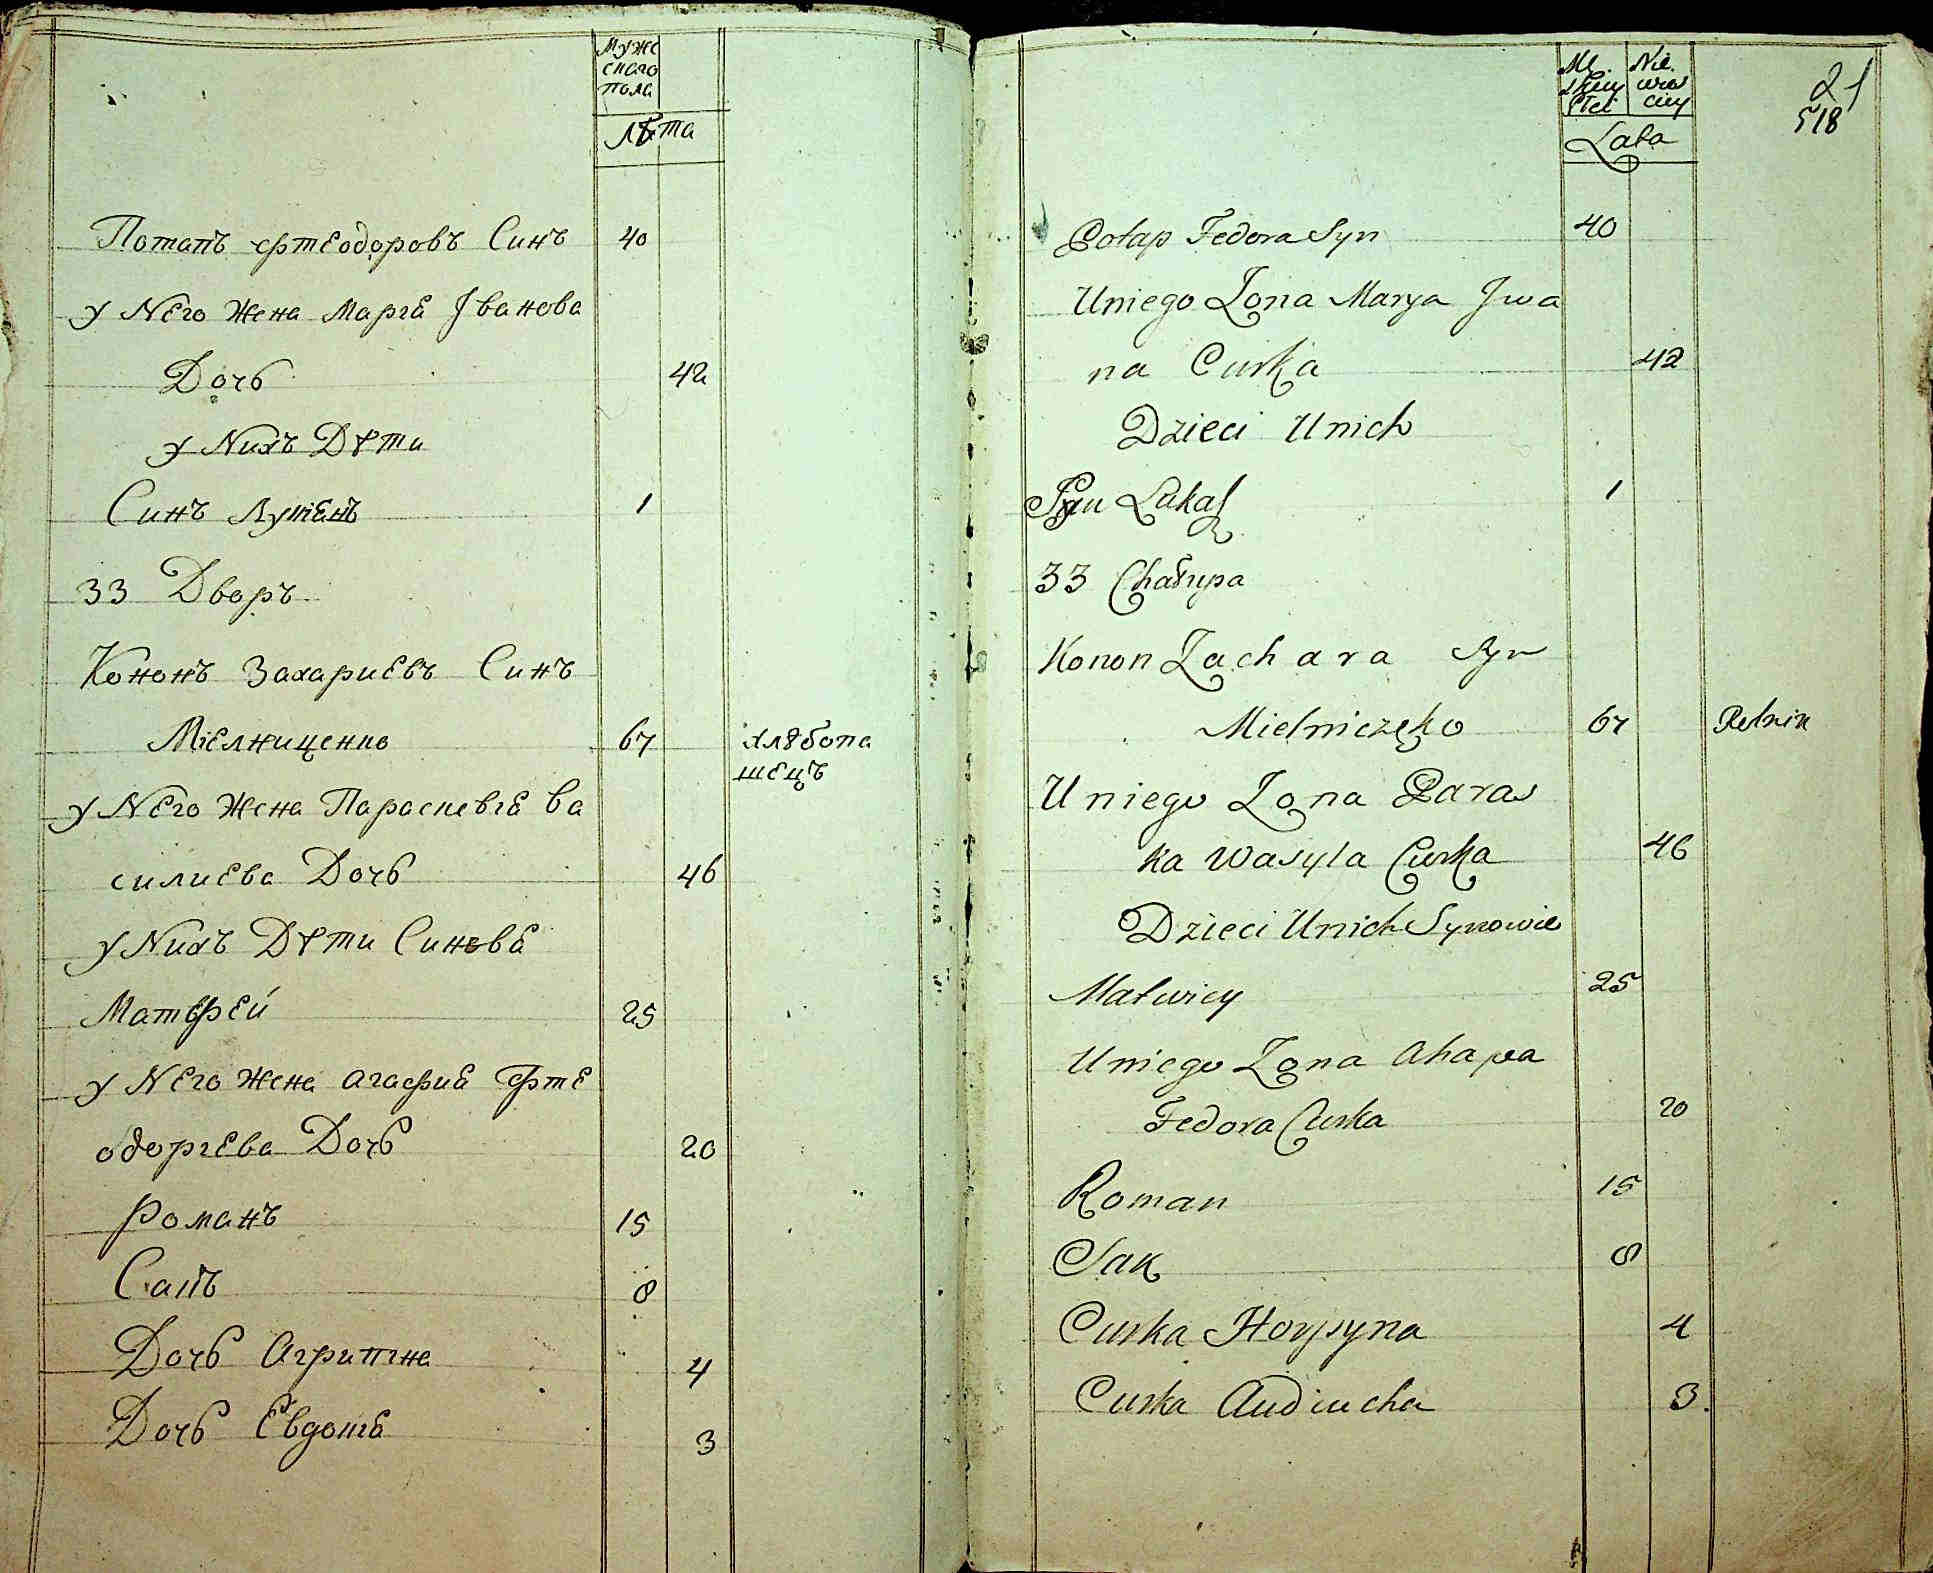 Мужс
скаго
пола
Лѣта
Потапъ фтеодоровъ Синъ 40
у Него Жена Маргѣ Іванова
Дочь 42
у Нихъ Дѣти
Синъ 1
33 Дворъ
Кононъ Захариевъ Синъ
Міелниценко 67 хлѣбопа
шецъ
у Него Жена Параскевгѣ ва
силиева Дочь 46
у Нихъ Дѣти Синовѣ
Матфей 25
у Него Жена Агафиѣ Фте
одоргева Дочь 20
Романъ 15
Сакъ 8
Дочь Агрипгна 4
Дочь Евдокгѣ 3
21
518
Lata
Potap Fedora Syn 40
Uniego Żona Marya Jwa
na Curka 42
Dzieci Unich
Syn Łukasz 1
33 Chałupa
Konon Zachara Syn
Mielniczęko 67 Rolnik
Uniego Żona Paras
ka Wasyla Curka 46
Dzieci Unich Synowie
Matwiey 25
Uniego Żona Ahapa
Fedora Curka 20
Roman 15
Sak 8
Curka Horpyna 4
Curka Audiucha 3.